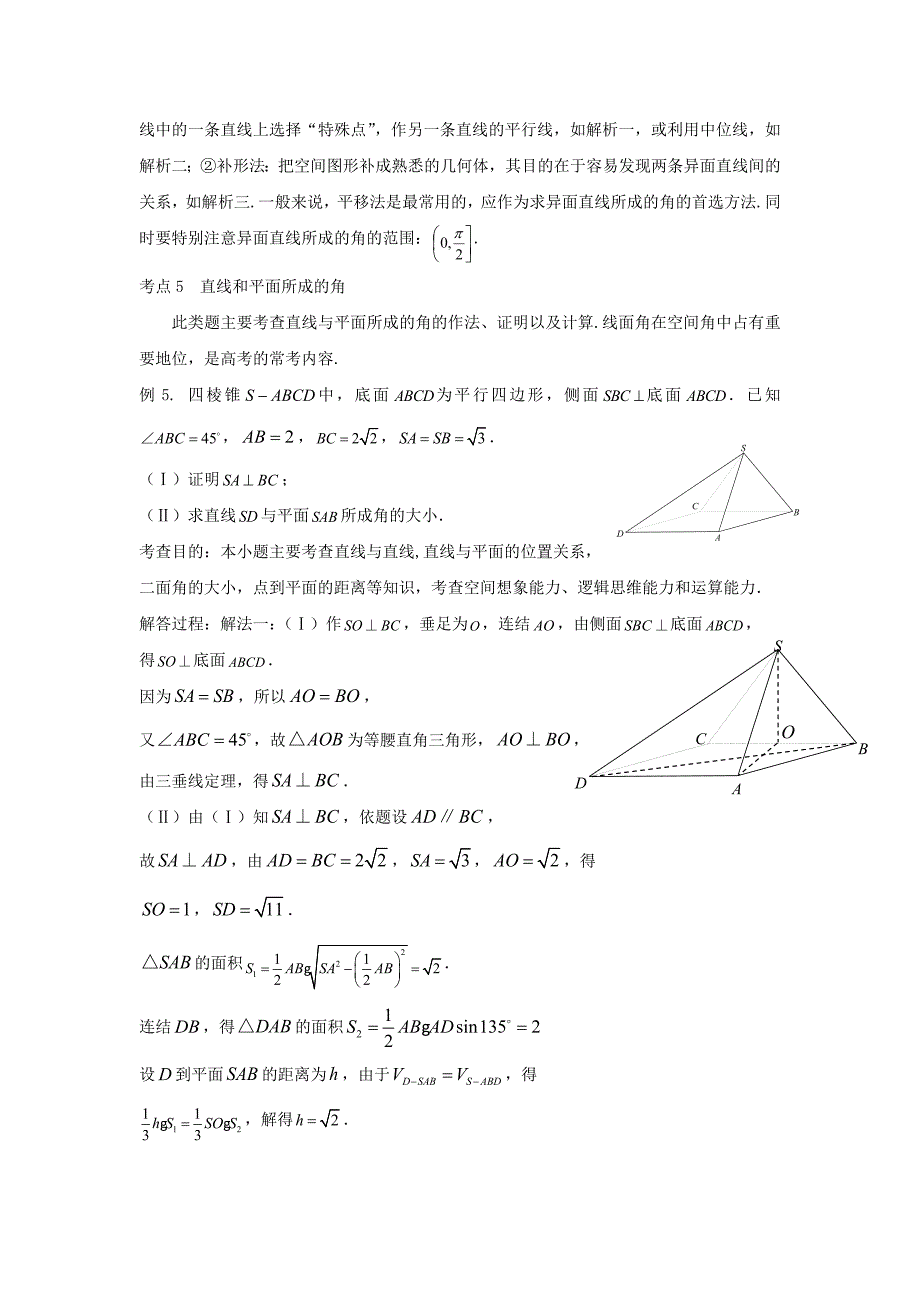 线中的一条直线上选择“特殊点”，作另一条直线的平行线，如解析一，或利用中位线，如
解析二；②补形法：把空间图形补成熟悉的几何体，其目的在于容易发现两条异面直线间的
关系，如解析三.一般来说，平移法是最常用的，应作为求异面直线所成的角的首选方法.同
时要特别注意异面直线所成的角的范围：(0, π/2].
考点5　直线和平面所成的角
此类题主要考查直线与平面所成的角的作法、证明以及计算.线面角在空间角中占有重
要地位，是高考的常考内容.
例 5. 四棱锥 S－ABCD 中，底面 ABCD 为平行四边形，侧面 SBC⊥底面 ABCD．已知
∠ABC＝45°，AB＝2，BC＝2√2，SA＝SB＝√3．
（Ⅰ）证明 SA⊥BC；
（Ⅱ）求直线 SD 与平面 SAB 所成角的大小．
S
C
B
D
A
考查目的：本小题主要考查直线与直线,直线与平面的位置关系,
二面角的大小，点到平面的距离等知识，考查空间想象能力、逻辑思维能力和运算能力．
解答过程：解法一：（Ⅰ）作 SO⊥BC，垂足为 O，连结 AO，由侧面 SBC⊥底面 ABCD，
得 SO⊥底面 ABCD．
因为 SA＝SB，所以 AO＝BO，
又∠ABC＝45°，故△AOB 为等腰直角三角形，AO⊥BO，
由三垂线定理，得 SA⊥BC．
S
C
O
B
D
A
（Ⅱ）由（Ⅰ）知 SA⊥BC，依题设 AD∥BC，
故 SA⊥AD，由 AD＝BC＝2√2，SA＝√3，AO＝√2，得
SO＝1，SD＝√11．
△SAB 的面积 S₁＝1/2 ABg√(SA²－(1/2 AB)²)＝√2．
连结 DB，得△DAB 的面积 S₂＝1/2 ABgAD sin135°＝2
设 D 到平面 SAB 的距离为 h，由于 V_{D－SAB}＝V_{S－ABD}，得
1/3 hgS₁＝1/3 SOgS₂，解得 h＝√2．